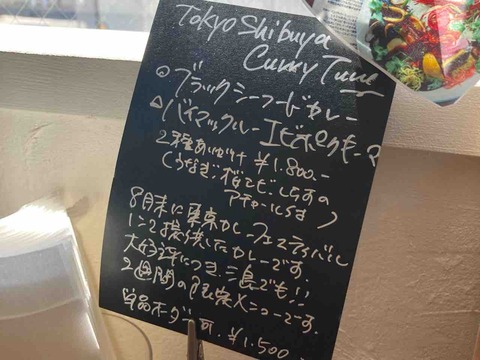 Tokyo Shibuya
Curry Tune
◎ブラックシーフードカレー
△バイマックルーエビポークキーマ
2種あいがけ ¥1.800.-
(うなぎ・桜エビ・しらすの
アチャールつき)
8月末に東京カレーフェスティバル
にて提供したカレーです
大好評につき三島でも!!
2週間の限定メニューです.
単品オーダー可. ¥1.500.-